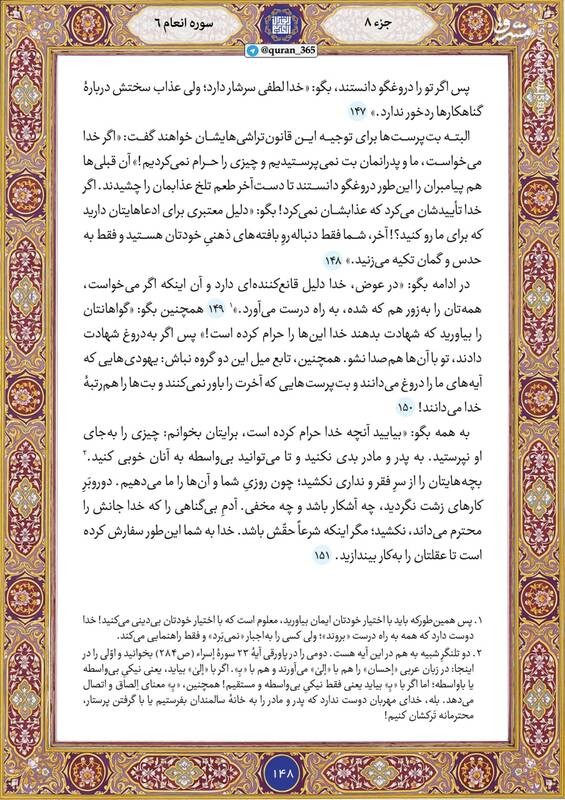 جزء ۸
سوره انعام ۶
@quran_365
مشرق
پس اگر تو را دروغگو دانستند، بگو: «خدا لطفی سرشار دارد؛ ولی عذاب سختش دربارهٔ
گناهکارها ردخور ندارد.» ۱۴۷
البته بت‌پرست‌ها برای توجیه این قانون‌تراشی‌هایشان خواهند گفت: «اگر خدا
می‌خواست، ما و پدرانمان بت نمی‌پرستیدیم و چیزی را حرام نمی‌کردیم!» آن قبلی‌ها
هم پیامبران را این‌طور دروغگو دانستند تا دست‌آخر طعم تلخ عذابمان را چشیدند. اگر
خدا تأییدشان می‌کرد که عذابشان نمی‌کرد! بگو: «دلیل معتبری برای ادعاهایتان دارید
که برای ما رو کنید؟! آخر، شما فقط دنباله‌روِ بافته‌های ذهنیِ خودتان هستید و فقط به
حدس و گمان تکیه می‌زنید.» ۱۴۸
در ادامه بگو: «در عوض، خدا دلیل قانع‌کننده‌ای دارد و آن اینکه اگر می‌خواست،
همه‌تان را به‌زور هم که شده، به راه درست می‌آورد.»۱ ۱۴۹ همچنین بگو: «گواهانتان
را بیاورید که شهادت بدهند خدا این‌ها را حرام کرده است!» پس اگر به‌دروغ شهادت
دادند، تو با آن‌ها هم‌صدا نشو. همچنین، تابع میل این دو گروه نباش: یهودی‌هایی که
آیه‌های ما را دروغ می‌دانند و بت‌پرست‌هایی که آخرت را باور نمی‌کنند و بت‌ها را هم‌رتبهٔ
خدا می‌دانند! ۱۵۰
به همه بگو: «بیایید آنچه خدا حرام کرده است، برایتان بخوانم: چیزی را به‌جای
او نپرستید. به پدر و مادر بدی نکنید و تا می‌توانید بی‌واسطه به آنان خوبی کنید.۲
بچه‌هایتان را از سرِ فقر و نداری نکشید؛ چون روزیِ شما و آن‌ها را ما می‌دهیم. دوروبَرِ
کارهای زشت نگردید، چه آشکار باشد و چه مخفی. آدمِ بی‌گناهی را که خدا جانش را
محترم می‌داند، نکشید؛ مگر اینکه شرعاً حقّش باشد. خدا به شما این‌طور سفارش کرده
است تا عقلتان را به‌کار بیندازید. ۱۵۱
۱. پس همین‌طورکه باید با اختیار خودتان ایمان بیاورید، معلوم است که با اختیار خودتان بی‌دینی می‌کنید! خدا
دوست دارد که همه به راه درست «بروند»؛ ولی کسی را به‌اجبار «نمی‌بَرد» و فقط راهنمایی می‌کند.
۲. دو تلنگرِ شبیه به هم در این آیه هست. دومی را در پاورقی آیهٔ ۲۳ سورهٔ إسراء (ص۲۸۴) بخوانید و اوّلی را در
اینجا: در زبان عربی «إحسان» را هم با «إلیٰ» می‌آورند و هم با «بِـ». اگر با «إلیٰ» بیاید، یعنی نیکیِ بی‌واسطه
یا باواسطه؛ اما اگر با «بِـ» بیاید یعنی فقط نیکیِ بی‌واسطه و مستقیم! همچنین، «بِـ» معنای اِلصاق و اتصال
می‌دهد. بله، خدای مهربان دوست ندارد که پدر و مادر را به خانهٔ سالمندان بفرستیم یا با گرفتن پرستار،
محترمانه تَرکشان کنیم!
۱۴۸